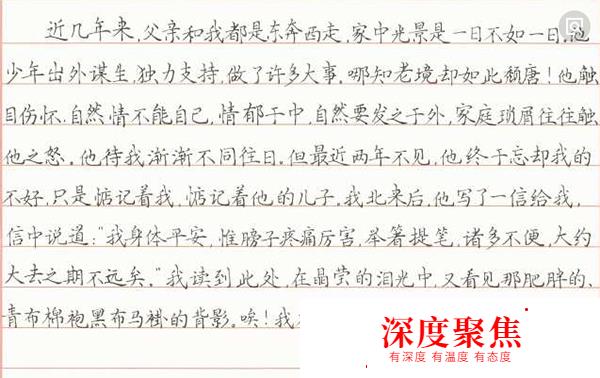 近几年来,父亲和我都是东奔西走,家中光景是一日不如一日。他
少年出外谋生,独力支持,做了许多大事。哪知老境却如此颓唐!他触
目伤怀,自然情不能自已,情郁于中,自然要发之于外,家庭琐屑往往触
他之怒。他待我渐渐不同往日。但最近两年不见,他终于忘却我的
不好,只是惦记着我,惦记着他的儿子。我北来后,他写了一信给我,
信中说道:“我身体平安,惟膀子疼痛厉害,举箸提笔,诸多不便,大约
大去之期不远矣。”我读到此处,在晶莹的泪光中,又看见那肥胖的、
青布棉袍黑布马褂的背影。唉!我
深度聚焦
有深度 有温度 有态度